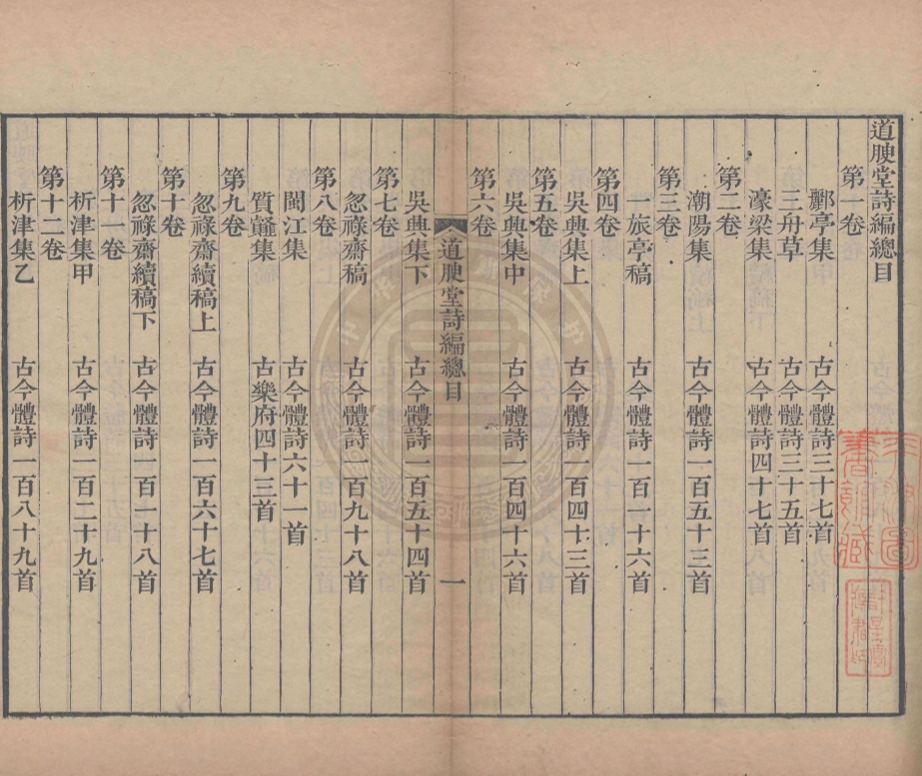 道腴堂詩編總目
第一卷
酈亭集 古今體詩三十七首
三舟草 古今體詩三十五首
濠梁集 古今體詩四十七首
第二卷
潮陽集 古今體詩一百五十三首
第三卷
一旅亭稿 古今體詩一百一十六首
第四卷
吳興集上 古今體詩一百四十三首
第五卷
吳興集中 古今體詩一百四十六首
第六卷
道腴堂詩編總目 一
吳興集下 古今體詩一百五十四首
第七卷
忽祿齋稿 古今體詩一百九十八首
第八卷
閩江集 古今體詩六十一首
質龥集 古樂府四十三首
第九卷
忽祿齋續稿上 古今體詩一百六十七首
第十卷
忽祿齋續稿下 古今體詩一百一十八首
第十一卷
析津集甲 古今體詩一百二十九首
第十二卷
析津集乙 古今體詩一百八十九首